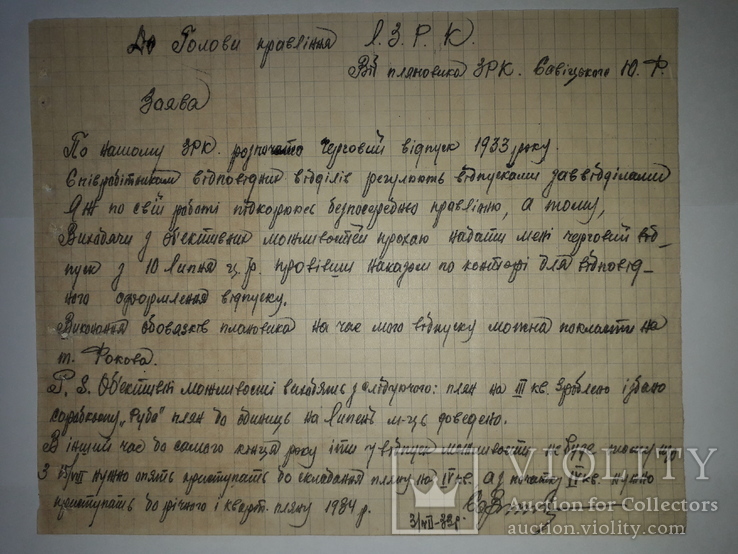 До Голови правління І. З. Р. К.
Від плановика ЗРК. Савіцького Ю. Ф.
Заява
По нашому ЗРК. розпочато черговий відпуск 1933 року.
Співробітникам відповідних відділів регулюють відпусками заввідділами
Я ж по свій работі підкорююсь безпосередньо правлінню, а тому,
Виходячи з обєктивних можливостей прохаю надати мені черговий від-
пуск з 10 липня ц. р. провівши наказом по конторі для відповід-
ного оформлення відпуску.
Виконання обовязків плановика на час мого відпуску можна покласти на
т. Фокова.
P. S. Обєктивні можливості виходять з слідуючого: план на III кв. зроблено і здано
план до одиниць на липень м-ць доведено.
В інший час до самого кінця року іти у відпуск можливости не буде тому що
з 15/VIII нужно опять приступать до складання пляну на IV кв. а з початку IV кв. нужно
приступать до річного і кварт. пляну 1934 р.
3/VII-33р.
VIOLITY
Auction for Collectors
auction.violity.com